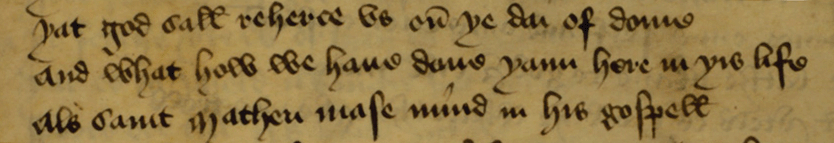 yat god sall reherce vs on̄ ye dai of dome
And what how we haue done yaim here in yis life
Als saint Matheu mase mind in his gospell